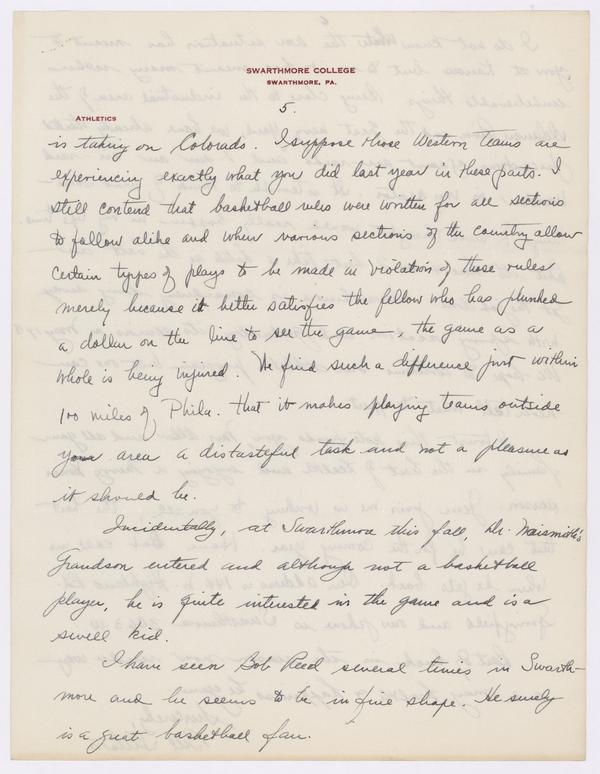 SWARTHMORE COLLEGE
SWARTHMORE, PA.
5.
ATHLETICS
is taking on Colorado. I suppose those Western teams are
experiencing exactly what you did last year in these parts. I
still contend that basketball rules were written for all sections
to follow alike and when various sections of the country allow
certain types of plays to be made in violation of those rules
merely because it better satisfies the fellow who has plunked
a dollar on the line to see the game, the game as a
whole is being injured. We find such a difference just within
100 miles of Phila. that it makes playing teams outside
your area a distasteful task and not a pleasure as
it should be.
Incidentally, at Swarthmore this fall, Dr. Naismith's
Grandson entered and although not a basketball
player, he is quite interested in the game and is a
swell kid.
I have seen Bob Reed several times in Swarth-
more and he seems to be in fine shape. He surely
is a great basketball fan.